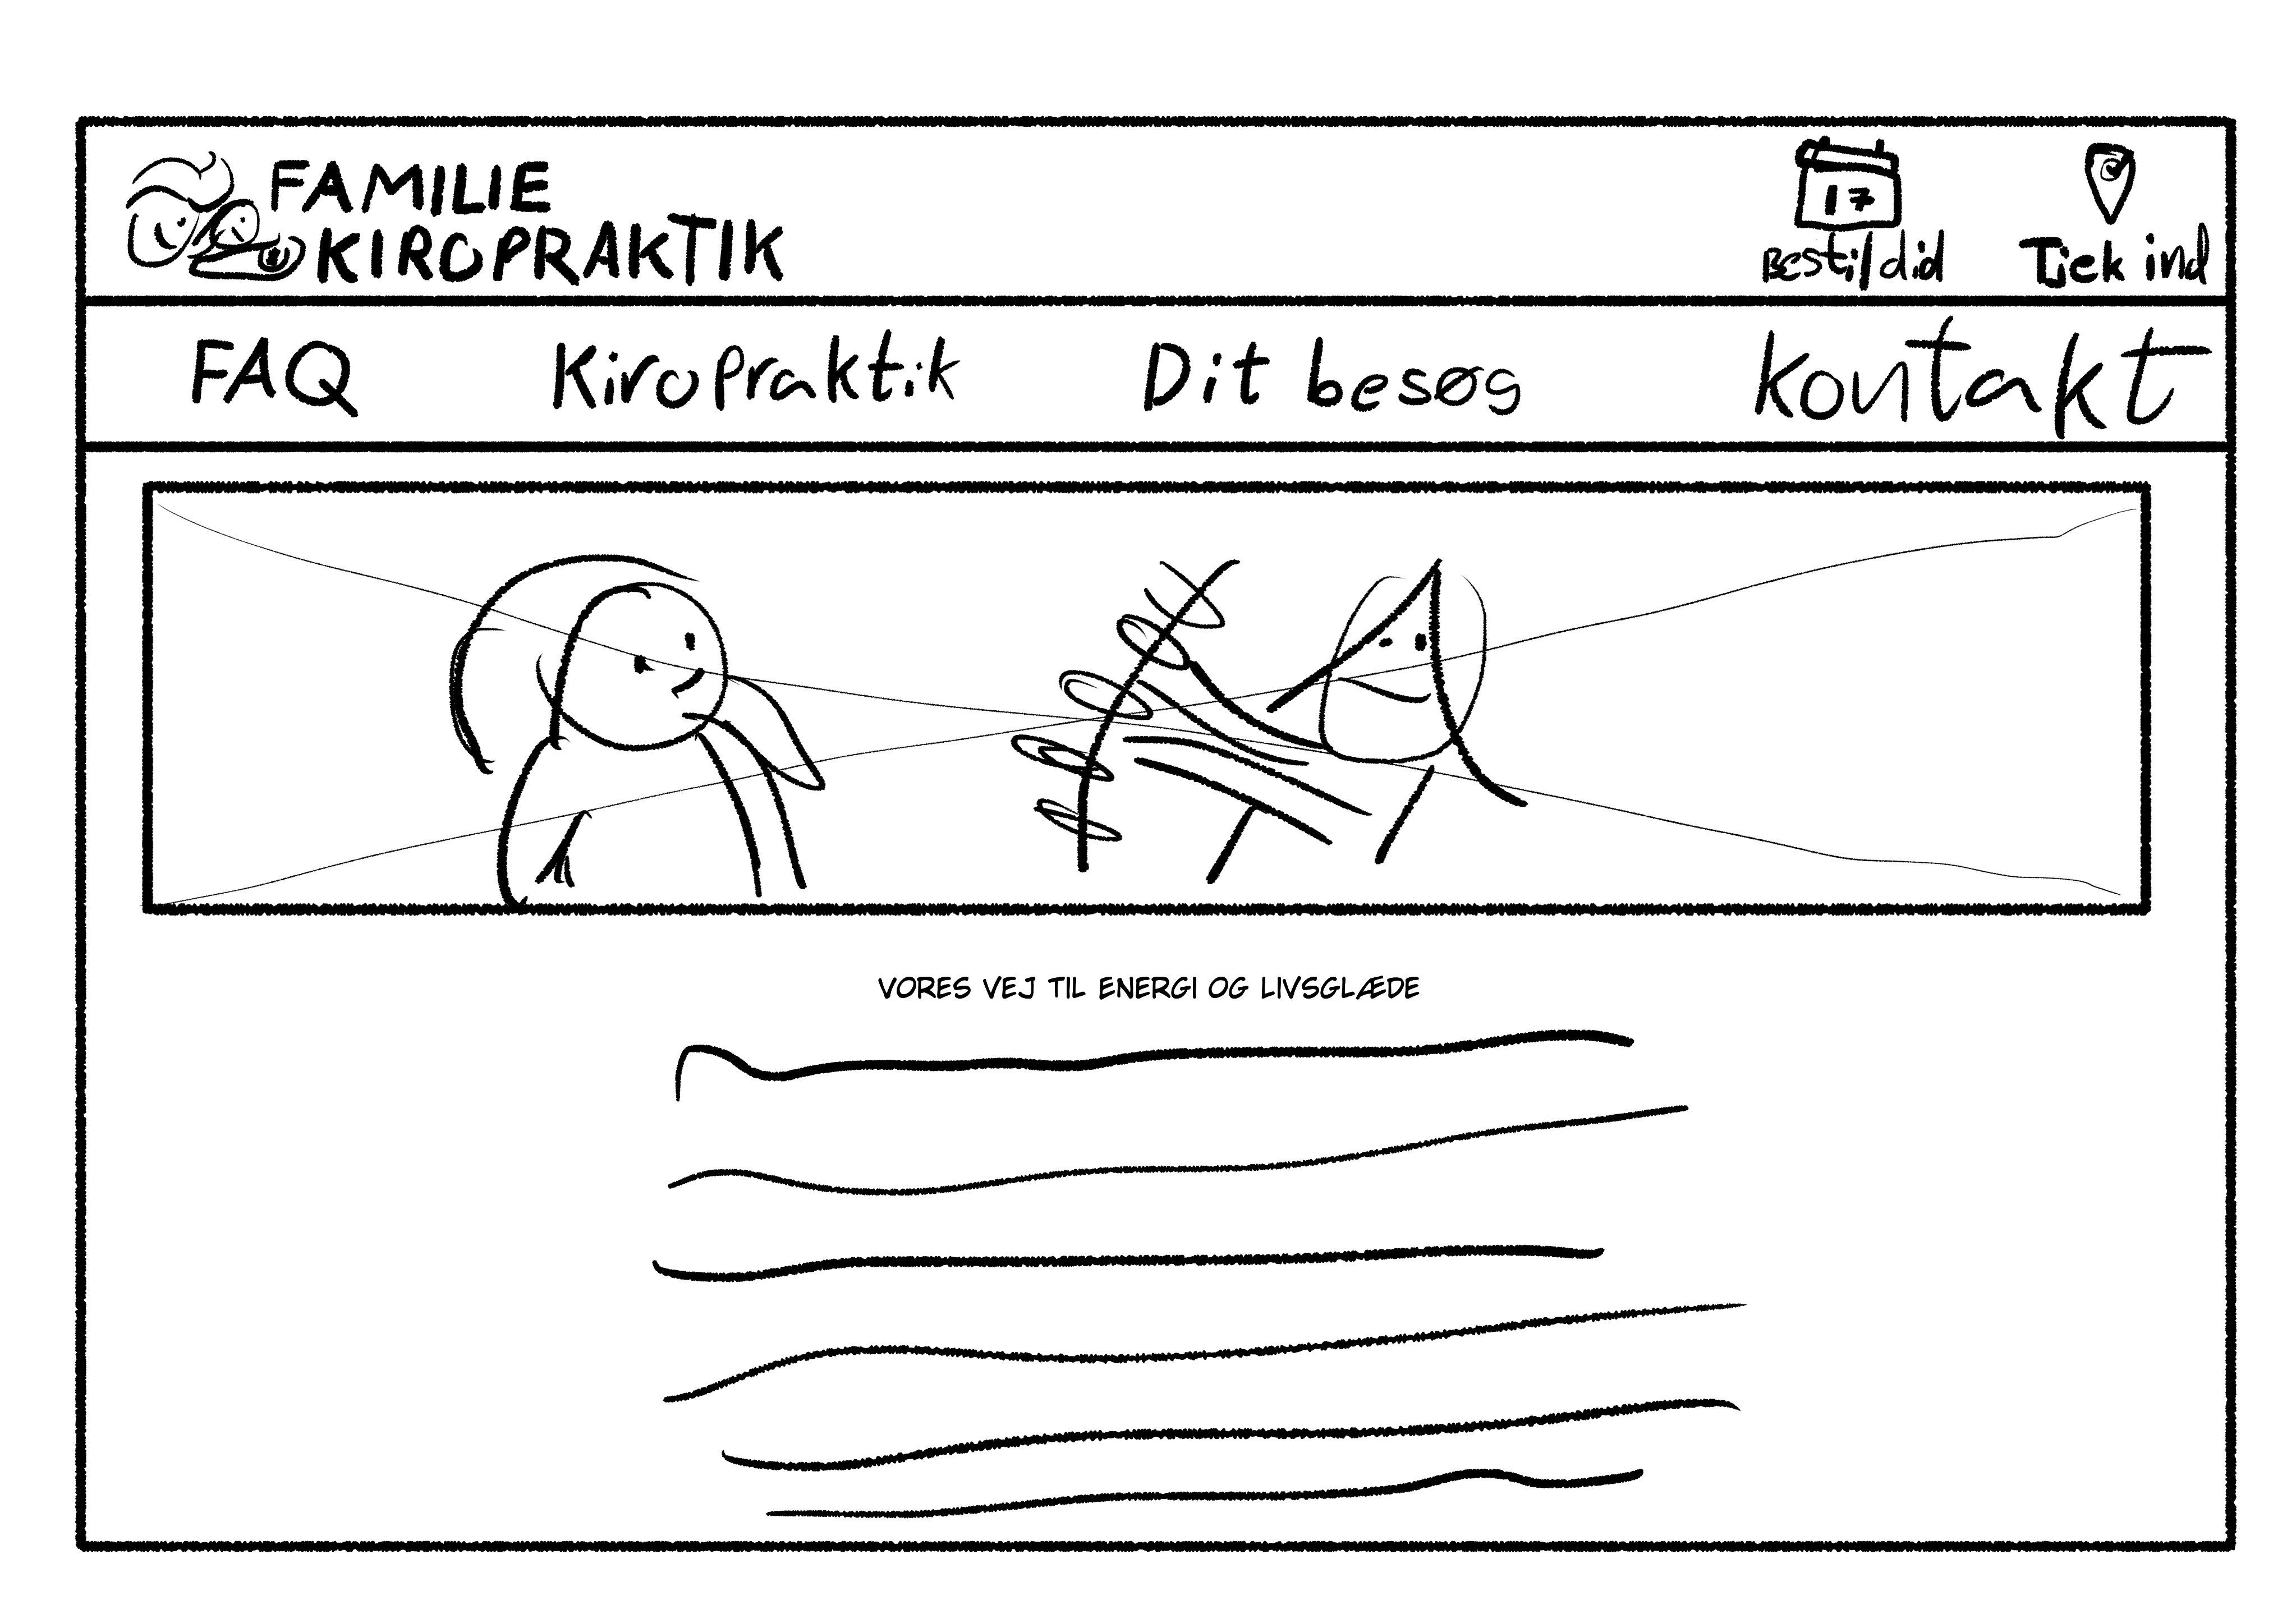 FAMILIE
KIROPRAKTIK
17
Bestil did
Tjek ind
FAQ Kiropraktik Dit besøg Kontakt
VORES VEJ TIL ENERGI OG LIVSGLÆDE